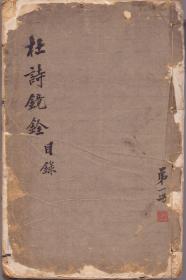 杜詩鏡銓 目錄
第一册